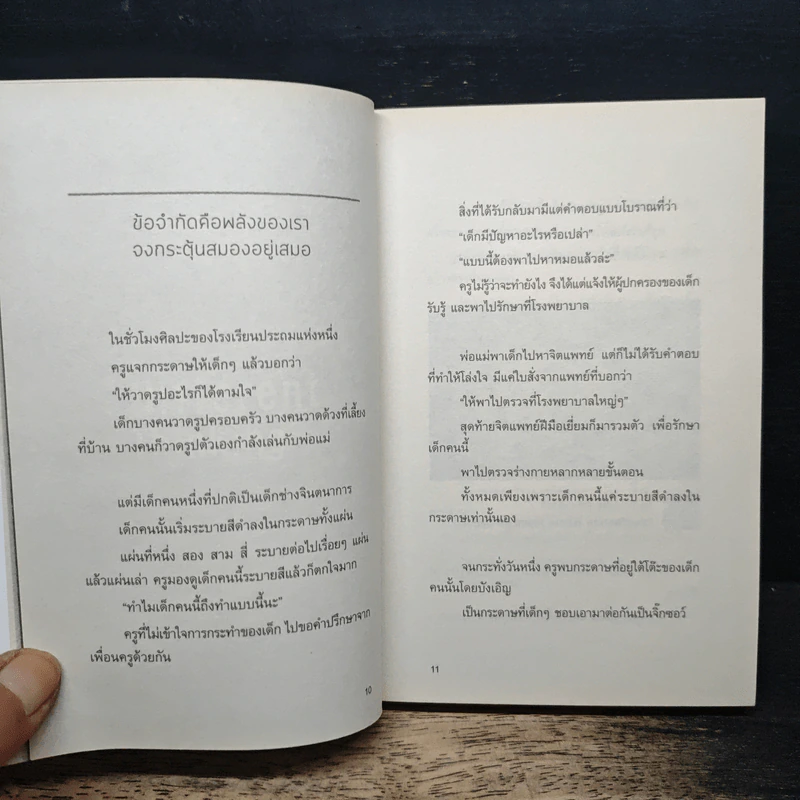 ข้อจำกัดคือพลังของเรา
จงกระตุ้นสมองอยู่เสมอ
ในชั่วโมงศิลปะของโรงเรียนประถมแห่งหนึ่ง
ครูแจกกระดาษให้เด็กๆ แล้วบอกว่า
“ให้วาดรูปอะไรก็ได้ตามใจ”
เด็กบางคนวาดรูปครอบครัว บางคนวาดด้วงที่เลี้ยง
ที่บ้าน บางคนก็วาดรูปตัวเองกำลังเล่นกับพ่อแม่
แต่มีเด็กคนหนึ่งที่ปกติเป็นเด็กช่างจินตนาการ
เด็กคนนั้นเริ่มระบายสีดำลงในกระดาษทั้งแผ่น
แผ่นที่หนึ่ง สอง สาม สี่ ระบายต่อไปเรื่อยๆ แผ่น
แล้วแผ่นเล่า ครูมองดูเด็กคนนี้ระบายสีแล้วก็ตกใจมาก
“ทำไมเด็กคนนี้ถึงทำแบบนี้นะ”
ครูที่ไม่เข้าใจการกระทำของเด็ก ไปขอคำปรึกษาจาก
เพื่อนครูด้วยกัน
10
สิ่งที่ได้รับกลับมามีแต่คำตอบแบบโบราณที่ว่า
“เด็กมีปัญหาอะไรหรือเปล่า”
“แบบนี้ต้องพาไปหาหมอแล้วล่ะ”
ครูไม่รู้ว่าจะทำยังไง จึงได้แต่แจ้งให้ผู้ปกครองของเด็ก
รับรู้ และพาไปรักษาที่โรงพยาบาล
พ่อแม่พาเด็กไปหาจิตแพทย์ แต่ก็ไม่ได้รับคำตอบ
ที่ทำให้โล่งใจ มีแค่ใบสั่งจากแพทย์ที่บอกว่า
“ให้พาไปตรวจที่โรงพยาบาลใหญ่ๆ”
สุดท้ายจิตแพทย์ฝีมือเยี่ยมก็มารวมตัว เพื่อรักษา
เด็กคนนี้
พาไปตรวจร่างกายหลากหลายขั้นตอน
ทั้งหมดเพียงเพราะเด็กคนนี้แค่ระบายสีดำลงใน
กระดาษเท่านั้นเอง
จนกระทั่งวันหนึ่ง ครูพบกระดาษที่อยู่ใต้โต๊ะของเด็ก
คนนั้นโดยบังเอิญ
เป็นกระดาษที่เด็กๆ ชอบเอามาต่อกันเป็นจิ๊กซอว์
11